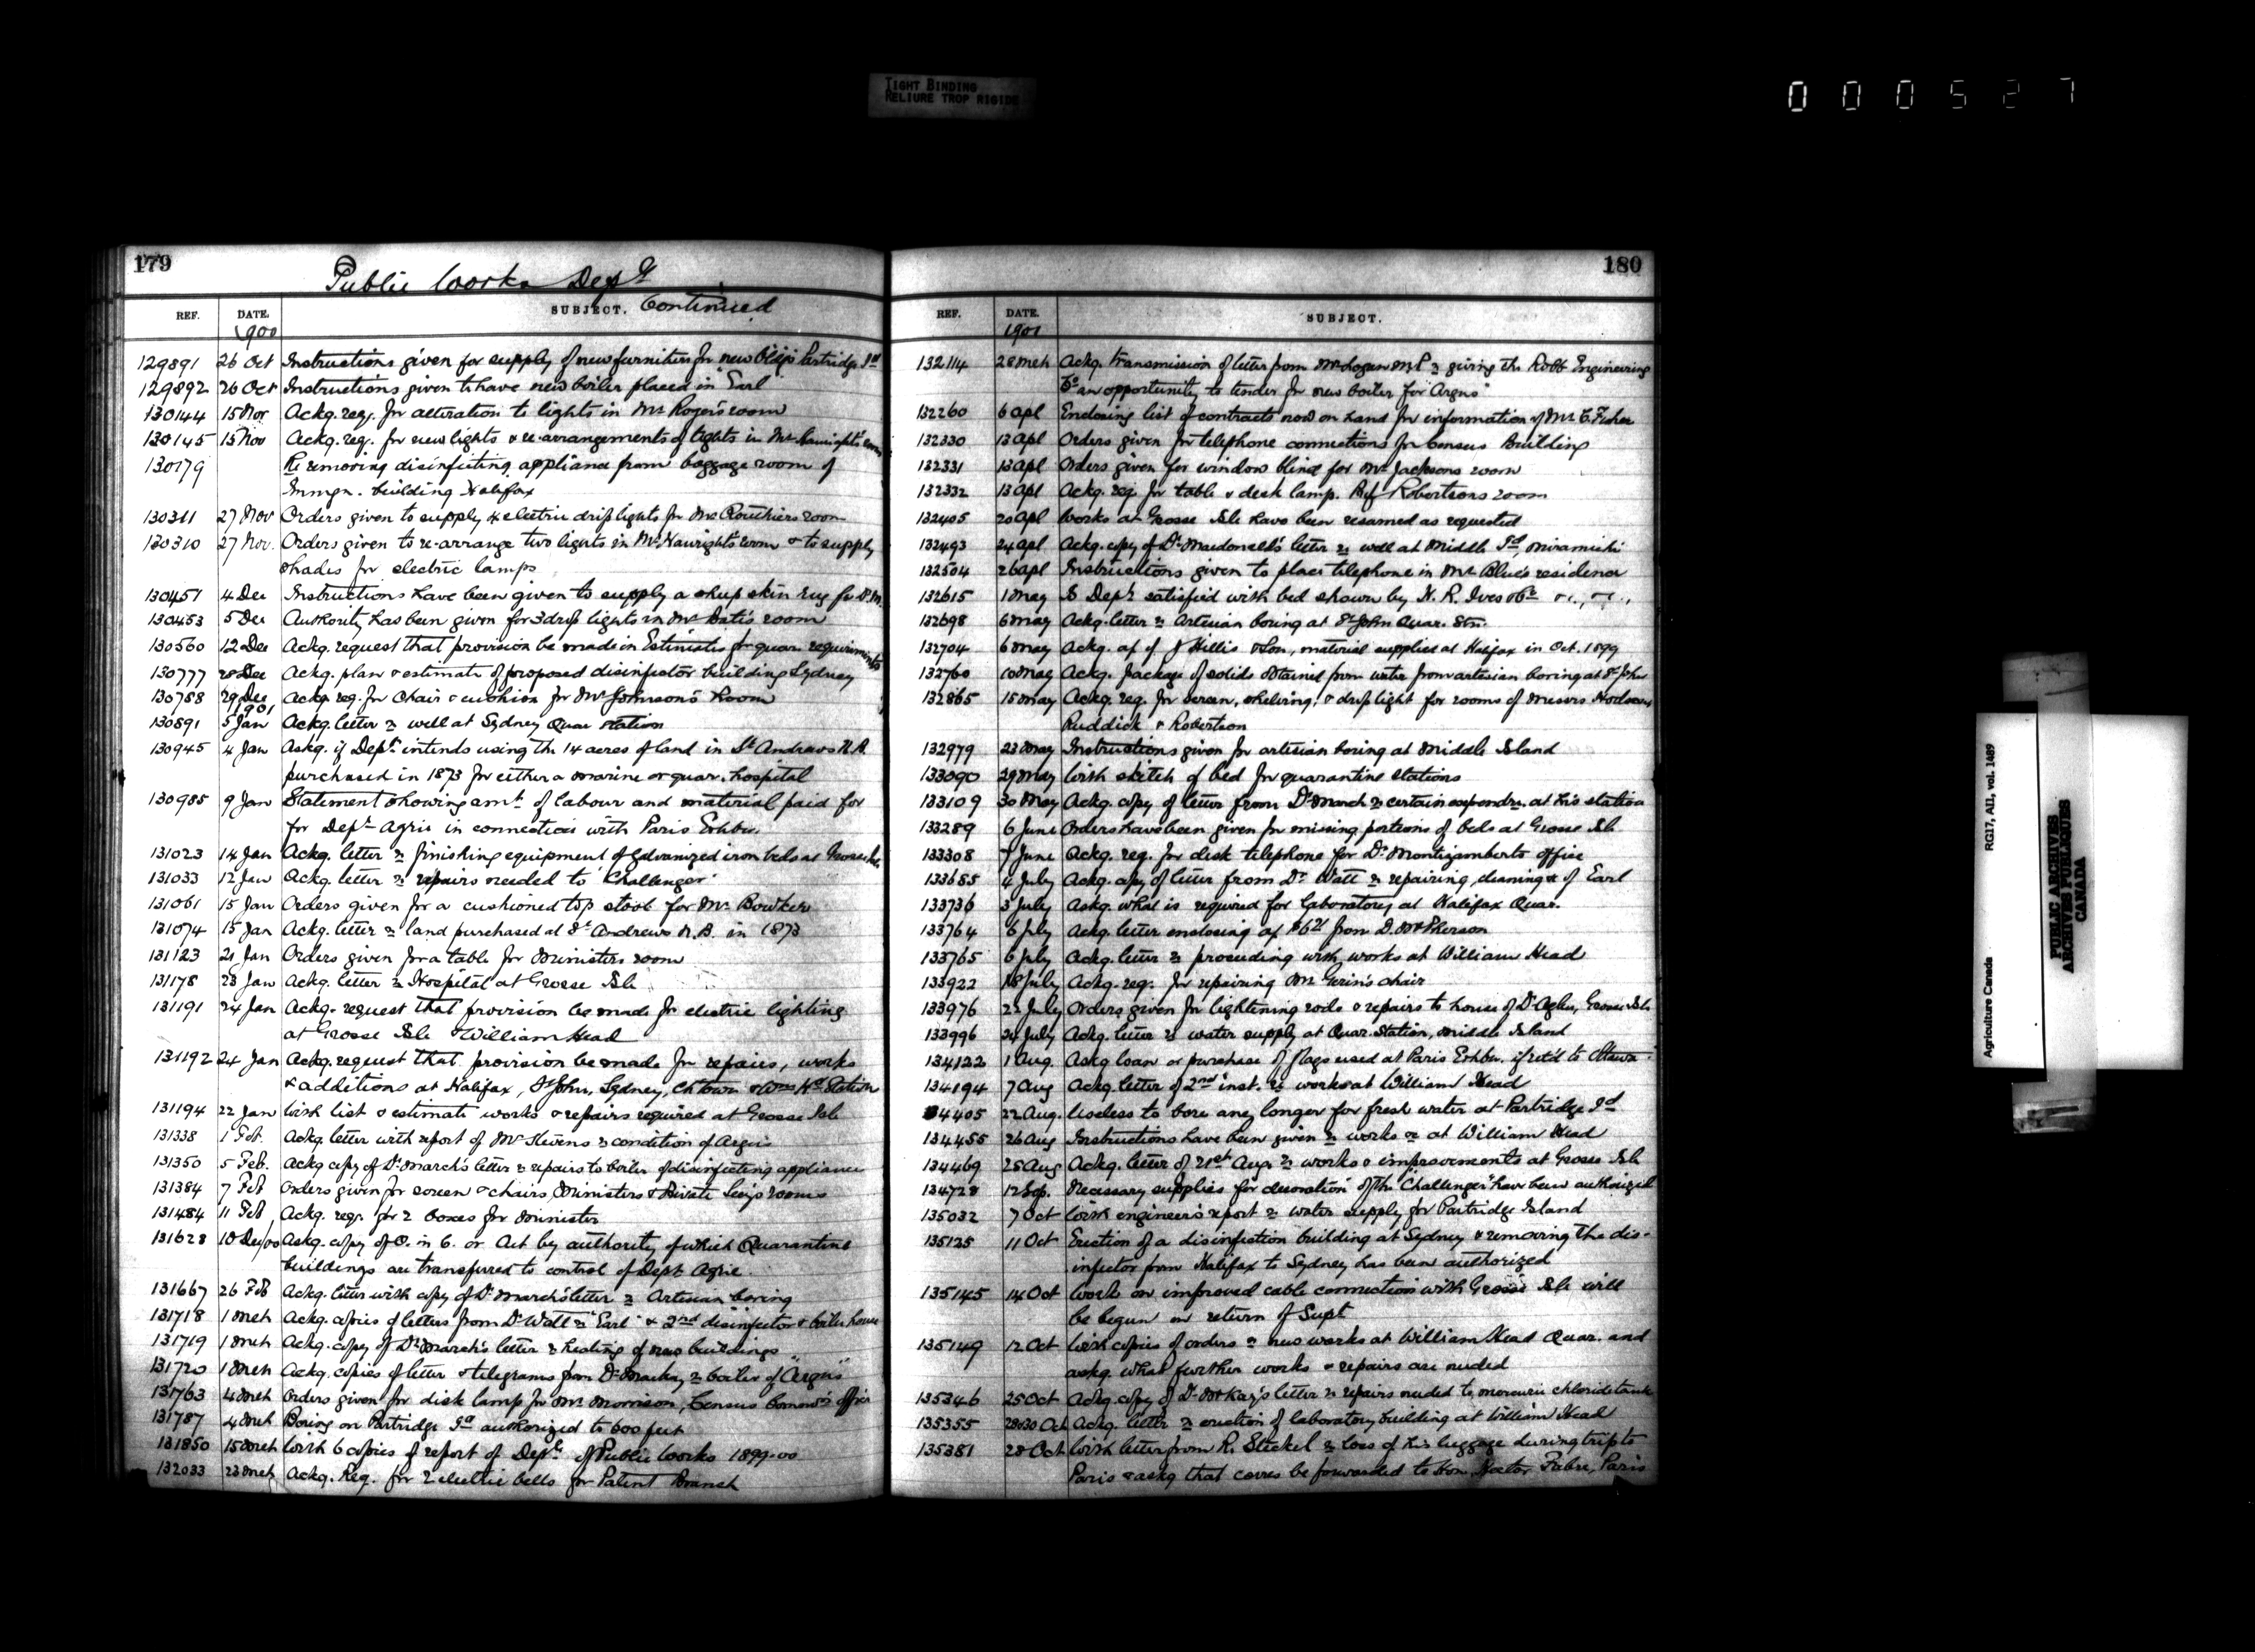 TIGHT BINDING
RELIURE TROP RIGIDE
000527
179
Public Works Dept
REF. DATE. SUBJECT. Continued
1900
129891 26 Oct Instructions given for supply of new furniture for new bldgs Partridge Id
129892 26 Oct Instructions given to have new boiler placed in "Earl"
130144 15 Nov Ackg. req. for alteration to lights in Mr Roger's room
130145 15 Nov Ackg. req. for new lights & re-arrangements of lights in Mr
130179 Re removing disinfecting appliance from baggage room of
Immgn. building Halifax
130311 27 Nov Orders given to supply 4 electric drip lights for Mr Routhiers room
130310 27 Nov. Orders given to re-arrange two lights in Mr. room & to supply
shades for electric lamps
130451 4 Dec Instructions have been given to supply a sheep skin rug for D.M.
130453 5 Dec Authority has been given for 3 drop lights in Mr room
130560 12 Dec Ackg. request that provision be made in Estimates for quar. requirements
130777 28 Dec Ackg. plan & estimate of proposed disinfector building Sydney
130788 29 Dec Ackg. req. for chair & cushion for Mr Johnson's room
1901
130891 5 Jan Ackg. letter re well at Sydney Quar station
130945 4 Jan Askg. if Dept. intends using the 14 acres of land in St Andrews N.B.
purchased in 1873 for either a marine or quar. hospital
130985 9 Jan Statement showing amt. of labour and material paid for
for Dept. Agric in connection with Paris Exhbn.
131023 14 Jan Ackg. letter re finishing equipment of galvanized iron beds at Grosse Isle
131033 12 Jan Ackg. letter re repairs needed to "Challenger"
131061 15 Jan Orders given for a cushioned top stool for Mr. Bowker
131074 15 Jan Ackg. letter re land purchased at St Andrews N.B. in 1873
131123 21 Jan Orders given for a table for Ministers room
131178 23 Jan Ackg. letter re Hospital at Grosse Isle
131191 24 Jan Ackg. request that provision be made for electric lighting
at Grosse Isle & William Head
131192 24 Jan Ackg. request that provision be made for repairs, works
& additions at Halifax, St John, Sydney, Chtown & Wm Hd Station
131194 22 Jan With list & estimate works & repairs required at Grosse Isle
131338 1 Feb. Ackg. letter with report of Mr Stevens re condition of Argus
131350 5 Feb. Ackg copy of Dr March's letter re repairs to boiler of disinfecting appliances
131384 7 Feb Orders given for screen & chairs, Ministers & Private Secy's rooms
131484 11 Feb Ackg. req. for 2 boxes for Minister
131628 10 Dec/00 Askg. copy of O. in C. or Act by authority of which Quarantine
buildings are transferred to control of Dept Agric.
131667 26 Feb Ackg. letter with copy of Dr March's letter re Artesian boring
131718 1 Mch Ackg. copies of letters from Dr Watt re "Earl" & 2nd disinfector & boiler house
131719 1 Mch Ackg. copy of Dr March's letter re heating of new buildings
131720 1 Mch Ackg. copies of letter & telegrams from Dr Mackay re boiler of "Argus"
131763 4 Mch Orders given for desk lamp for Mr Morrison, Census Commr's office
131787 4 Mch Boring on Partridge Id authorized to 600 feet
131850 15 Mch With 6 copies of report of Dept. of Public Works 1899-00
132033 23 Mch Ackg. Req. for 2 electric bells for Patent Branch
180
REF. DATE. SUBJECT.
1901
132114 28 Mch Ackg. transmission of letter from Mr Logan M.P. re giving the Robb Engineering
Co an opportunity to tender for new boiler for "Argus"
132260 6 Apl Enclosing list of contracts now on hand for information of Mr C. Fisher
132330 13 Apl Orders given for telephone connections for Census Building
132331 13 Apl Orders given for window blind for Mr Jacksons room
132332 13 Apl Ackg. req. for table & desk lamp. Prof Robertsons room
132405 20 Apl Works at Grosse Isle have been resumed as requested
132493 24 Apl Ackg. copy of Dr Macdonald's letter re well at Middle Id, Miramichi
132504 26 Apl Instructions given to place telephone in Mr Blue's residence
132615 1 May Is Dept. satisfied with bed shown by H. R. Ives & Co &c., &c.,
132698 6 May Ackg. letter re Artesian boring at St John Quar. Stn.
132704 6 May Ackg. a/c of J Hillis & Son, material supplied at Halifax in Oct. 1899
132760 10 May Ackg. package of solids obtained from water from artesian boring at St John
132865 15 May Ackg. req. for screen, shelving, & drip light for rooms of Messrs Hodson,
Ruddick & Robertson
132979 23 May Instructions given for artesian boring at Middle Island
133090 29 May With sketch of bed for quarantine stations
133109 30 May Ackg. copy of letter from Dr March re certain expendre. at his station
133289 6 June Orders have been given for missing portions of beds at Grosse Isle
133308 7 June Ackg. req. for desk telephone for Dr Montizamberts office
133685 4 July Ackg. copy of letter from Dr Watt re repairing, cleaning &c of Earl
133736 3 July Askg. what is required for laboratory at Halifax Quar.
133764 6 July Ackg. letter enclosing a/c from D. McPherson
133765 6 July Ackg. letter re proceeding with works at William Head
133922 18 July Ackg. req. for repairing Mr Gerin's chair
133976 22 July Orders given for lightening rods & repairs to house of Dr Grosse Isle
133996 24 July Ackg. letter re water supply at Quar. Station, Middle Island
134122 1 Aug. Askg loan or purchase of flags used at Paris Exhbn. if ret'd to Ottawa
134194 7 Aug Ackg. letter of 2nd inst. re works at William Head
134405 22 Aug. Useless to bore any longer for fresh water at Partridge Id
134455 26 Aug Instructions have been given re works &c at William Head
134469 25 Aug Ackg. letter of 21st Aug. re works & improvements at Grosse Isle
134728 12 Sep. Necessary supplies for decoration of the "Challenger" have been authorized
135032 7 Oct With engineer's report re water supply for Partridge Island
135125 11 Oct Erection of a disinfection building at Sydney & removing the dis-
infector from Halifax to Sydney has been authorized
135145 14 Oct Works on improved cable connection with Grosse Isle will
be begun on return of Supt
135149 12 Oct With copies of orders re new works at William Head Quar. and
askg. what further works & repairs are needed
135346 25 Oct Ackg. copy of Dr McKay's letter re repairs needed to mercuric chloride tank
135355 28&30 Oct Ackg. letter re erection of laboratory building at William Head
135381 28 Oct With letter from R. Steckel re loss of his luggage during trip to
Paris & askg that corres be forwarded to Hon. Hector Fabre, Paris
Agriculture Canada RG17, AII, vol. 1489
PUBLIC ARCHIVES
ARCHIVES PUBLIQUES
CANADA